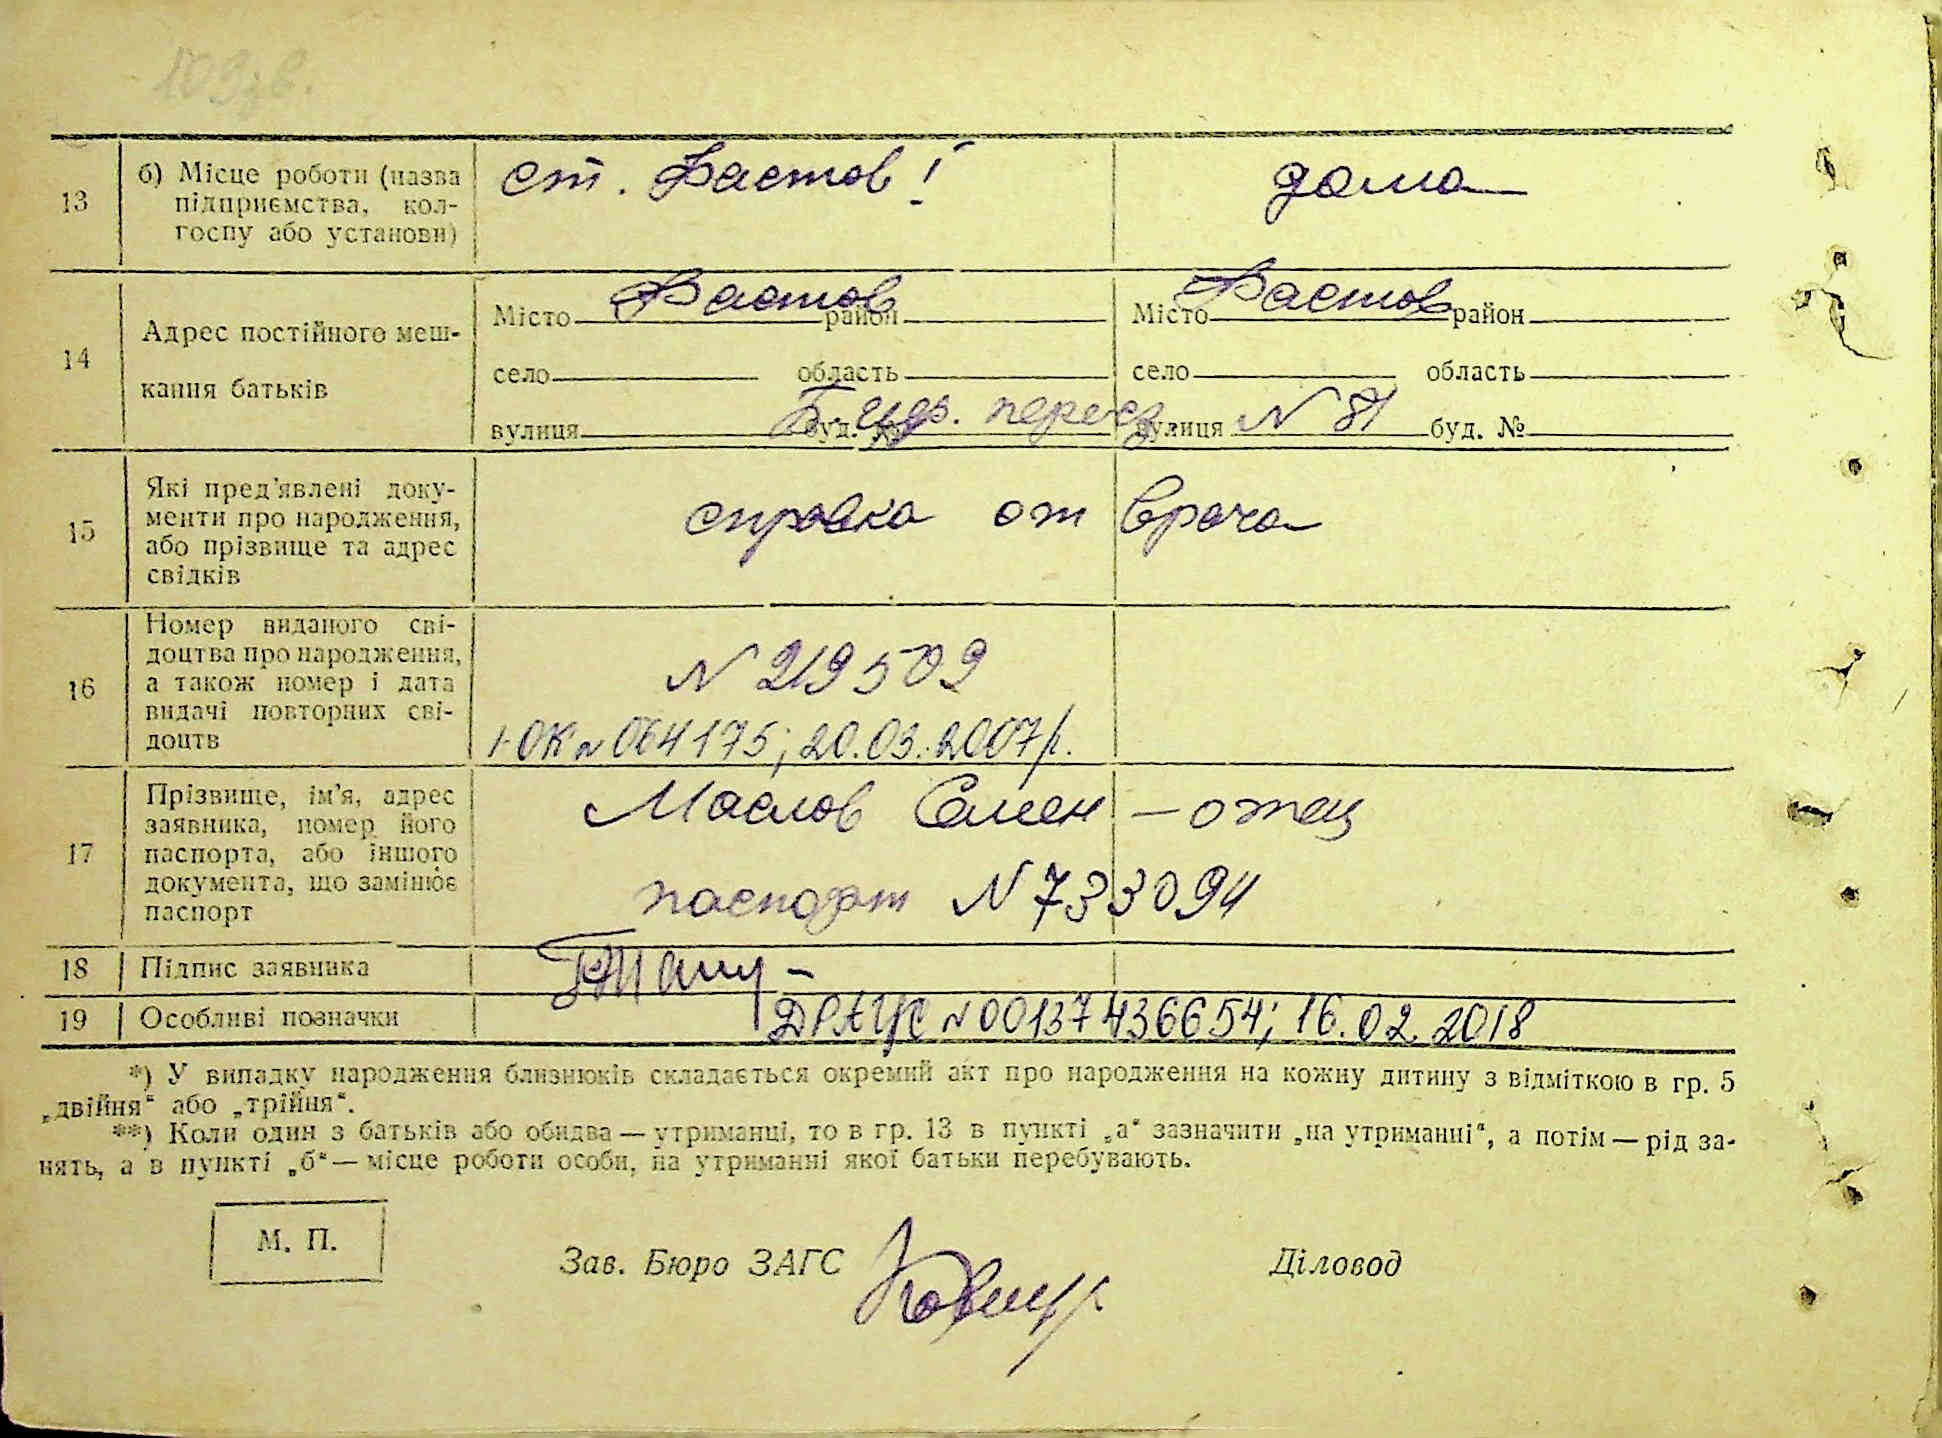 109зв.
13 б) Місце роботи (назва підприємства, кол-
госпу або установи)
ст. Фастов I
дома
14 Адрес постійного меш-
кання батьків
Місто Фастов район
село область
вулиця буд. №
Місто Фастов район
село область
вулиця N 81 буд. №
15 Які пред'явлені доку-
менти про народження,
або прізвище та адрес
свідків
справка от врача
16 Номер виданого сві-
доцтва про народження,
а також номер і дата
видачі повторних сві-
доцтв
N 219509
І-ОК № 064175; 20.03.2007р.
17 Прізвище, ім'я, адрес
заявника, номер його
паспорта, або іншого
документа, що замінює
паспорт
Маслов Семен – отец
паспорт N 733094
18 Підпис заявника
19 Особливі позначки
ДРАЦС № 00137436654; 16.02.2018
*) У випадку народження близнюків складається окремий акт про народження на кожну дитину з відміткою в гр. 5
„двійня“ або „трійня“.
**) Коли один з батьків або обидва — утриманці, то в гр. 13 в пункті „а“ зазначити „на утриманні“, а потім — рід за-
нять, а в пункті „б“ — місце роботи особи, на утриманні якої батьки перебувають.
М. П.
Зав. Бюро ЗАГС
Діловод